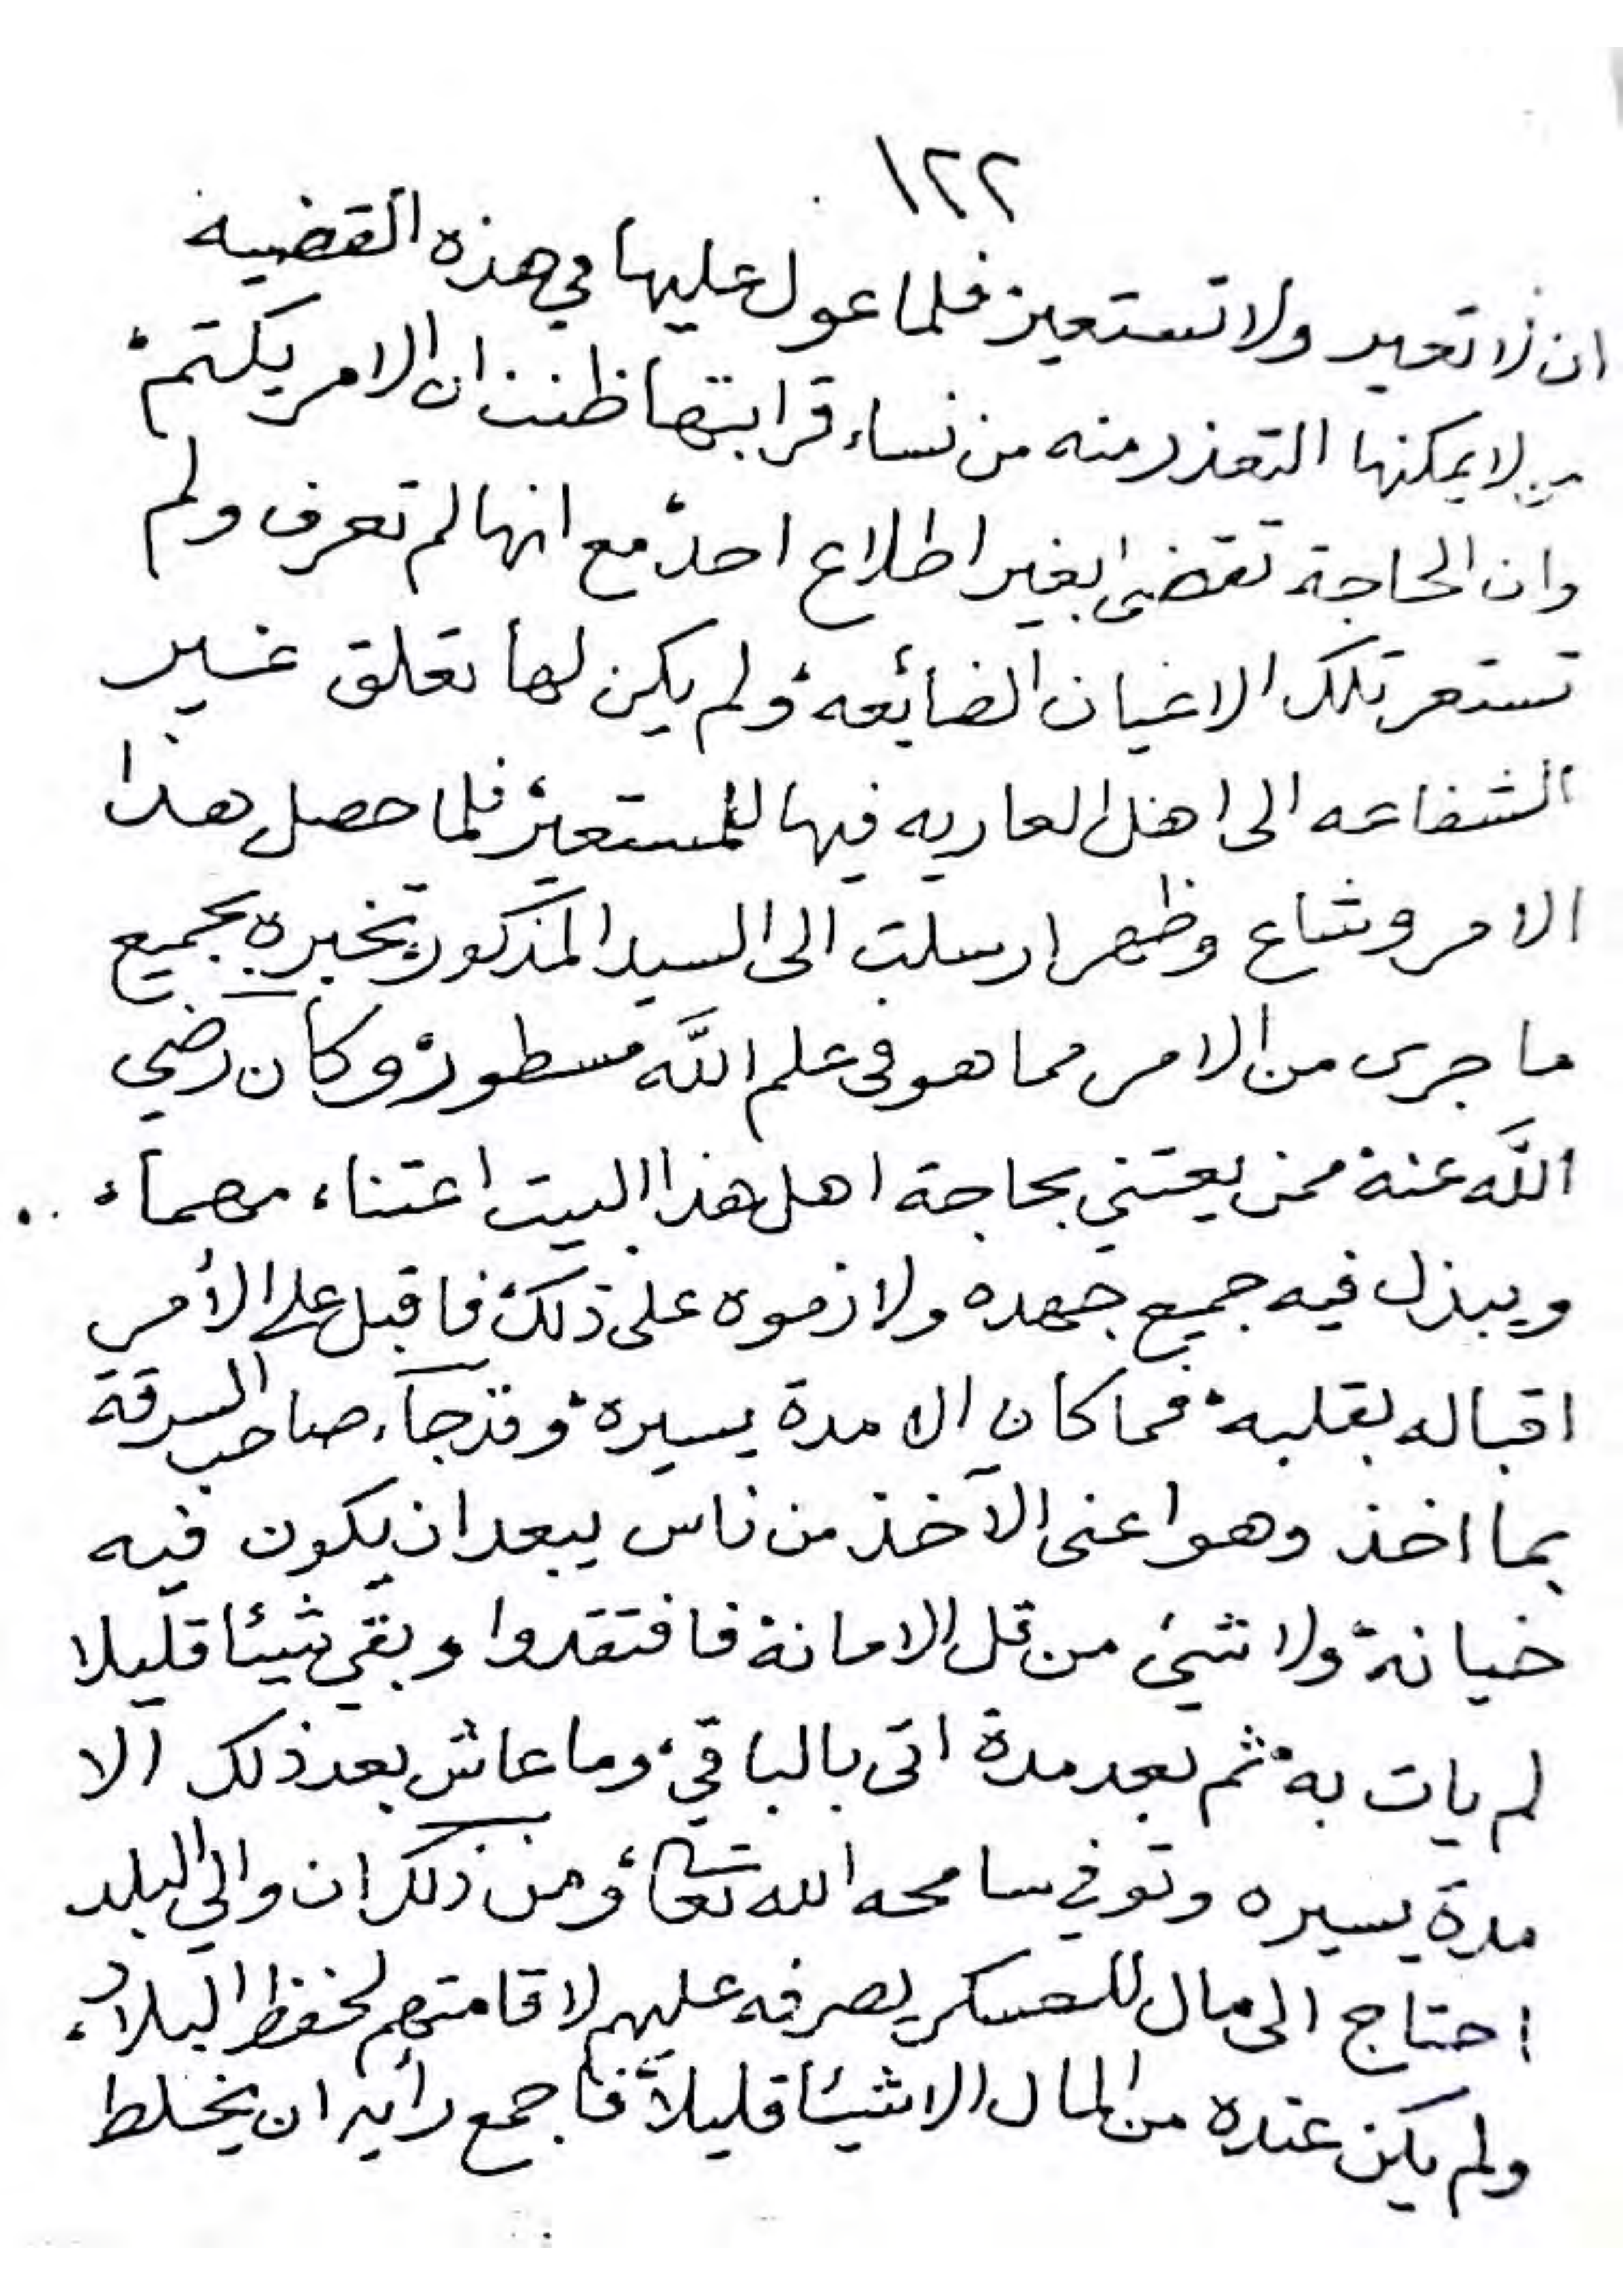 ١٢٢
ان لا تعير ولا تستعير فلما عول عليها في هذه القضيه
من لا يمكنها التعذر منه من نساء قرابتها ظنت ان الامر يكتم
وان الحاجة تقضى بغير اطلاع احد مع انها لم تعرف ولم
تستعر تلك الاعيان الضائعه ولم يكن لها تعلق غير
الشفاعه الى اهل العاريه فيها للمستعير فلما حصل هذا
الامر وشاع وظهر ارسلت الى السيد المذكور تخبره بجميع
ما جرى من الامر مما هو فى علم اللَّه مسطور وكان رضي
اللَّه عنه ممن يعتني بحاجة اهل هذا البيت اعتناء مهماء
ويبذل فيه جميع جهده ولازموه على ذلك فاقبل على الأمر
اقباله بقلبه فما كان الا مدة يسيره وقد جآء صاحب السرقة
بما اخذ وهو اعنى الآخذ من ناس يبعد ان يكون فيه
خيانة ولا شيئ من قل الامانة فافتقدوا وبقي شيئا قليلا
لم يات به ثم بعد مدة اتى بالباقي وما عاش بعد ذلك الا
مدة يسيره وتوفي سامحه الله تعالى ومن ذلك ان والي البلد
احتاج الى مال للعسكر يصرفه عليهم لاقامتهم لحفظ البلاد
ولم يكن عنده من المال الا شيئا قليلاً فاجمع رأيه ان يخلط